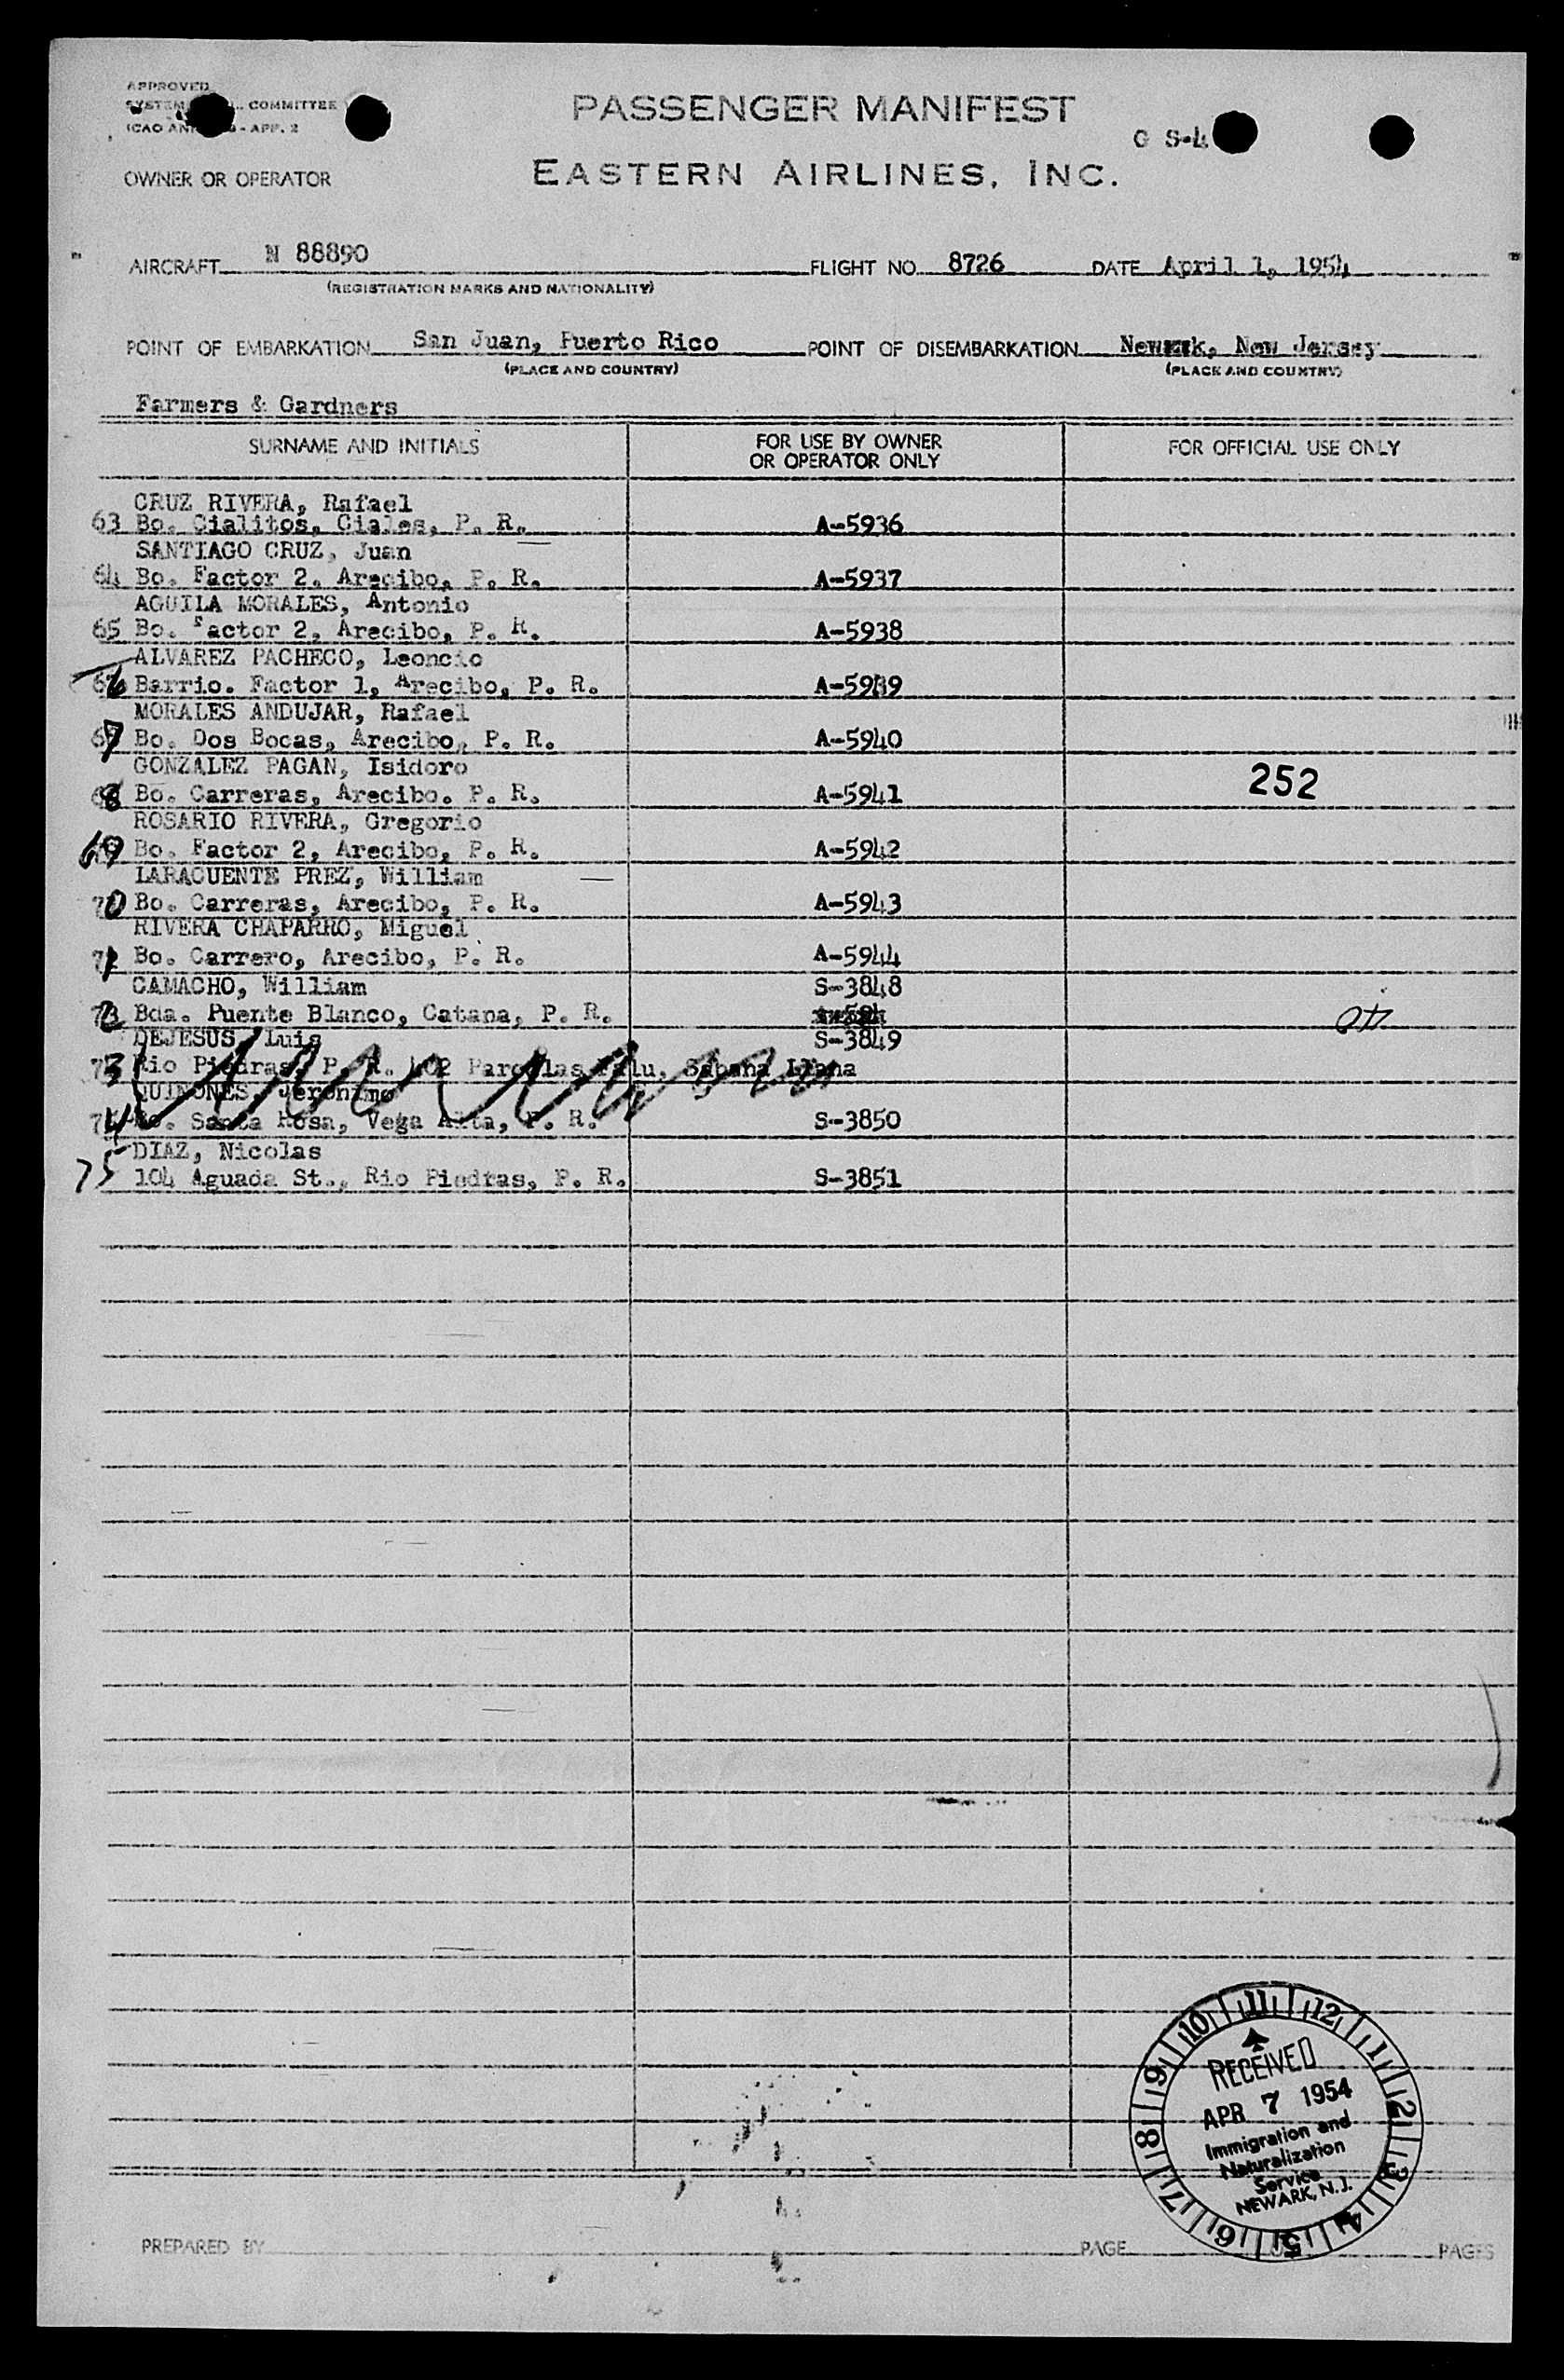 APPROVED
SYSTEM COMMITTEE
ICAO - APP. 2
PASSENGER MANIFEST
G S-4
OWNER OR OPERATOR
EASTERN AIRLINES, INC.
AIRCRAFT N 88890 FLIGHT NO. 8726 DATE April 1, 1954
(REGISTRATION MARKS AND NATIONALITY)
POINT OF EMBARKATION San Juan, Puerto Rico POINT OF DISEMBARKATION Newark, New Jersey
(PLACE AND COUNTRY) (PLACE AND COUNTRY)
Farmers & Gardners
SURNAME AND INITIALS FOR USE BY OWNER OR OPERATOR ONLY FOR OFFICIAL USE ONLY
CRUZ RIVERA, Rafael
63 Bo. Cialitos, Ciales, P. R. A-5936
SANTIAGO CRUZ, Juan
64 Bo. Factor 2. Arecibo, P. R. A-5937
AGUILA MORALES, Antonio
65 Bo. Factor 2, Arecibo, P. R. A-5938
ALVAREZ PACHECO, Leoncio
66 Barrio. Factor 1, Arecibo, P. R. A-5939
MORALES ANDUJAR, Rafael
67 Bo. Dos Bocas, Arecibo, P. R. A-5940
GONZALEZ PAGAN, Isidoro
68 Bo. Carreras, Arecibo. P. R. A-5941 252
ROSARIO RIVERA, Gregorio
69 Bo. Factor 2, Arecibo, P. R. A-5942
LARACUENTE PREZ, William
70 Bo. Carreras, Arecibo, P. R. A-5943
RIVERA CHAPARRO, Miguel
71 Bo. Carrero, Arecibo, P. R. A-5944
CAMACHO, William S-3848
72 Bda. Puente Blanco, Catana, P. R.
DEJESUS, Luis S-3849
73 Rio Piedras, P. R. 402 Parcelas Falu, Sabana Llana
QUINONES, Jeronimo
74 Bo. Santa Rosa, Vega Alta, P. R. S-3850
DIAZ, Nicolas
75 104 Aguada St., Rio Piedras, P. R. S-3851
10 11 12 1 2 3 4 5 6 7 8 9
RECEIVED
APR 7 1954
Immigration and
Naturalization
Service
NEWARK, N. J.
PREPARED BY PAGE PAGES